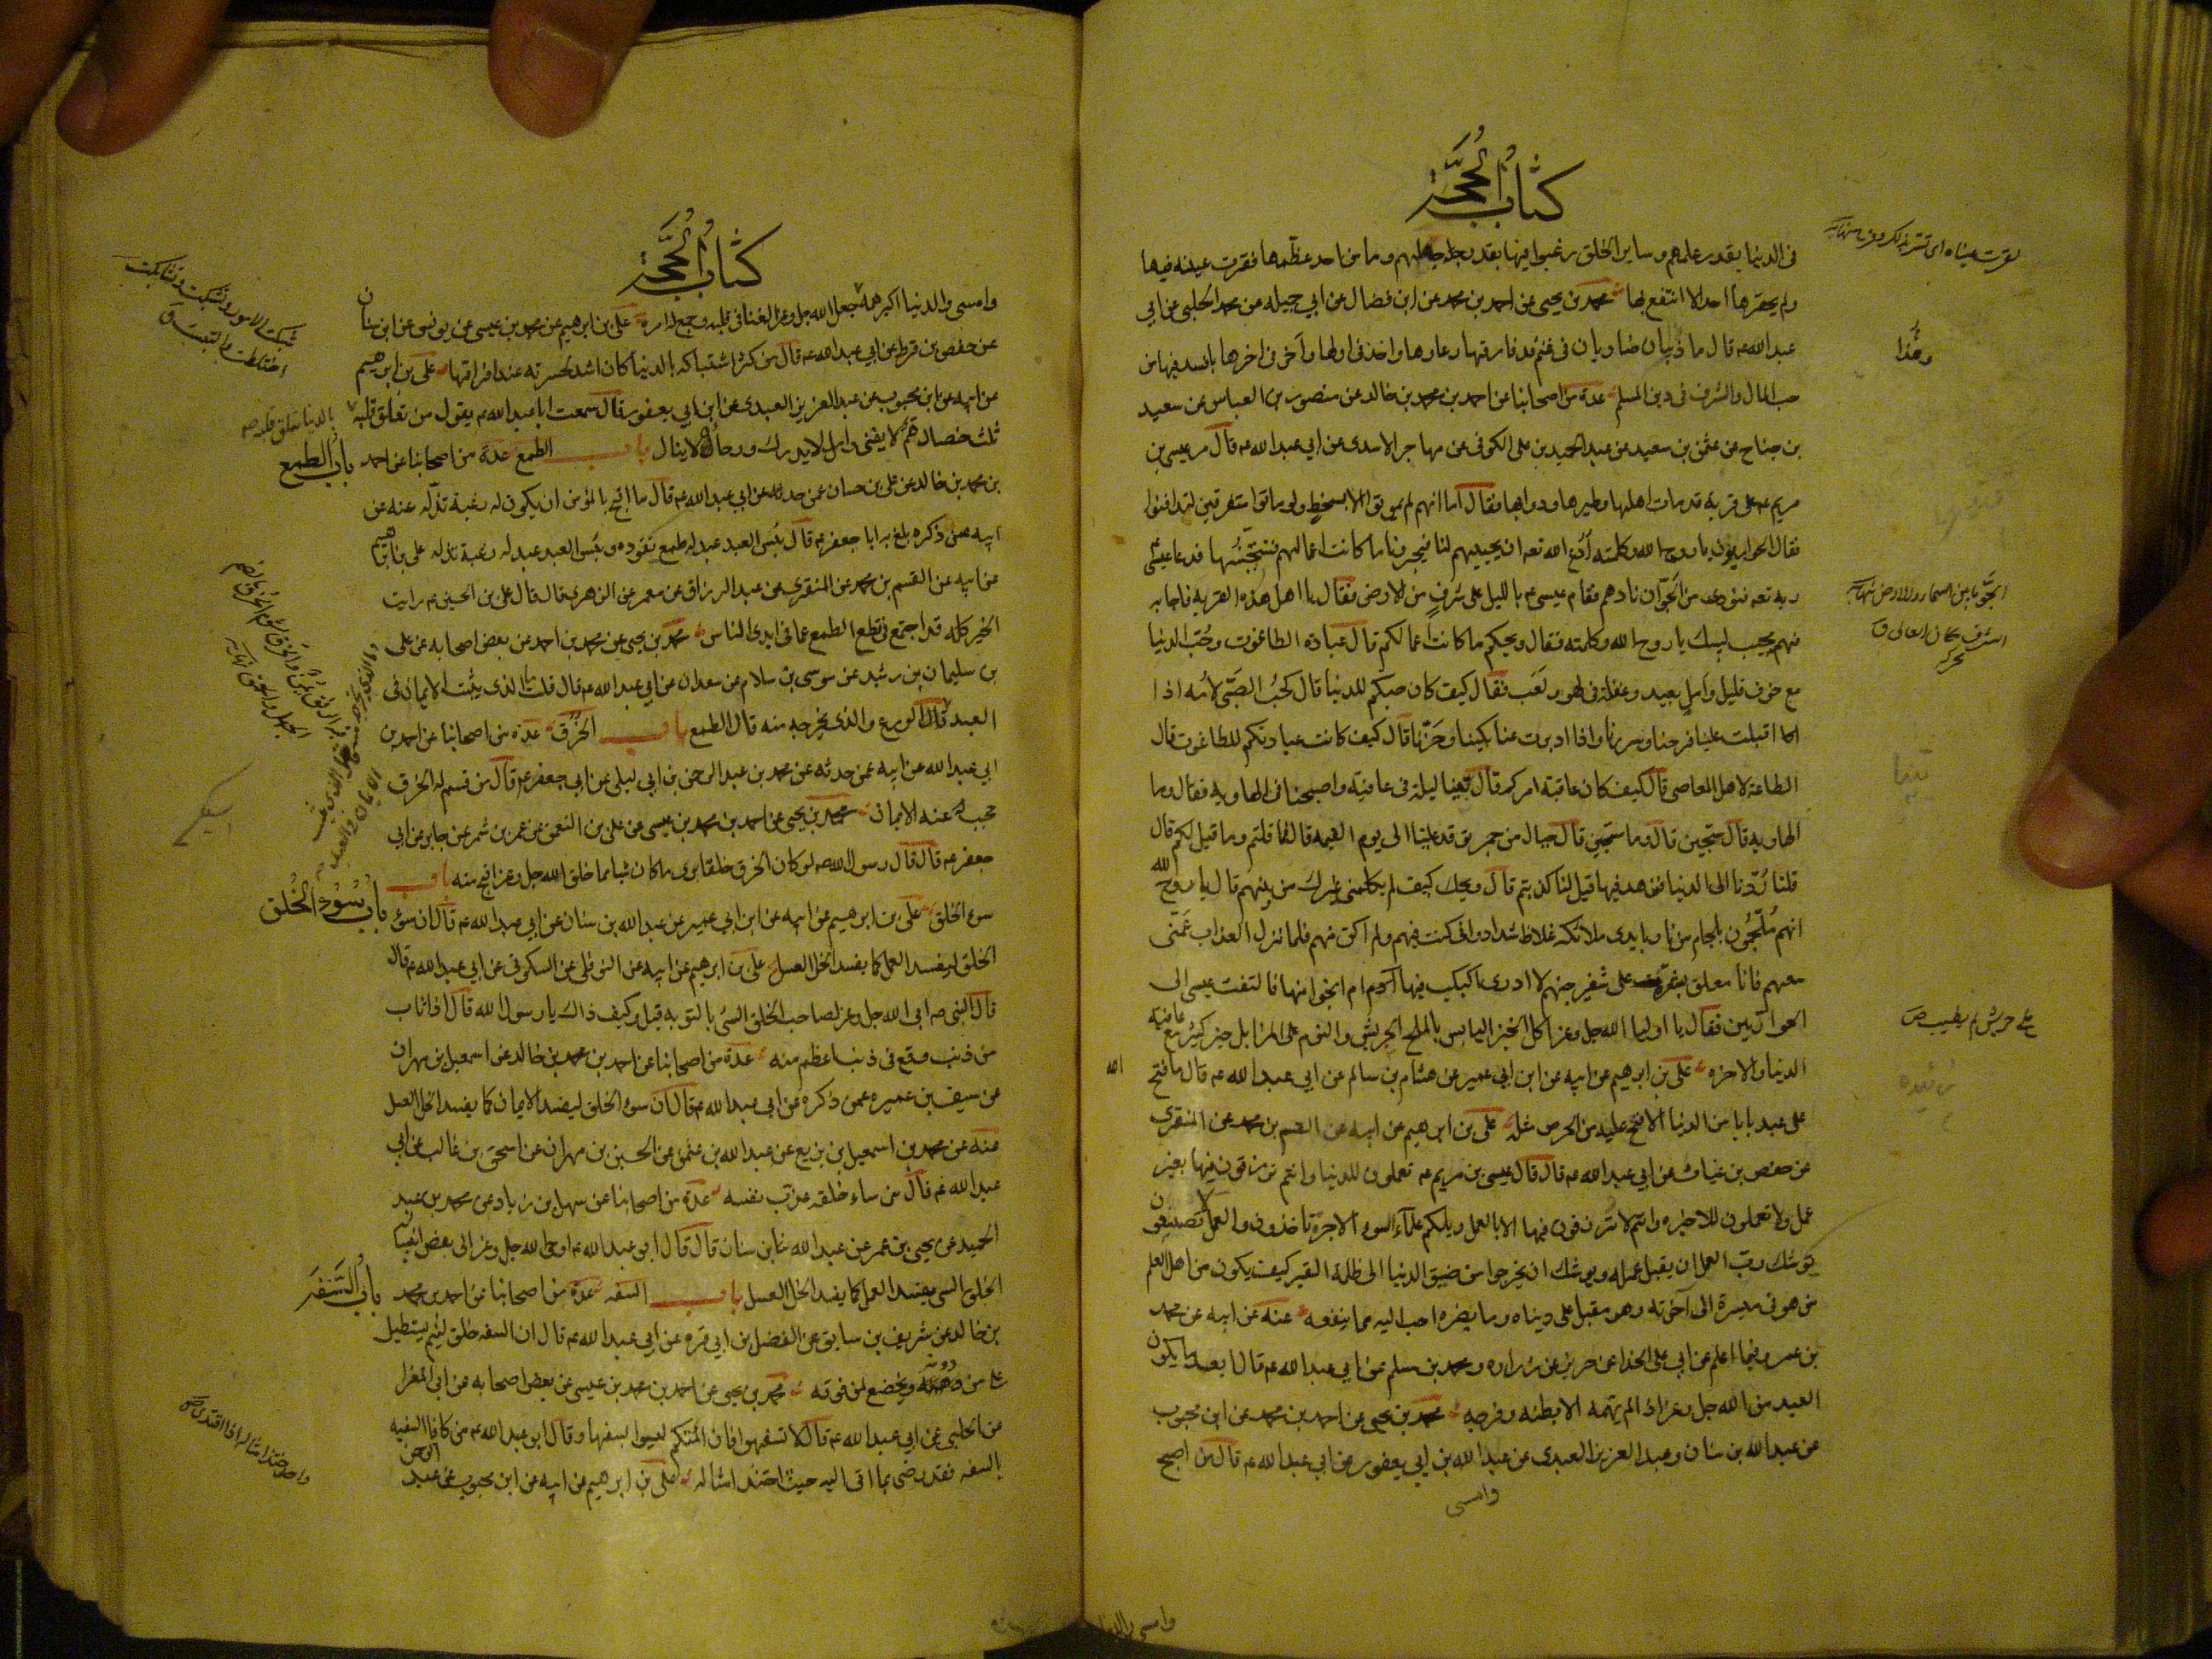 كتاب الحجة
في الدنيا بقدر علمهم وساير الخلق رغبوا فيها بقدر جهلهم وما من احد عظمها فقرت عينه فيها
ولم يحقرها احد الا انتفع بها محمد بن يحيى عن احمد بن محمد عن ابن فضال عن ابي جميله عن محمد الحلبي عن ابي
عبد الله عه قال ما ذئبان ضاريان في غنم قد فارقها رعاؤها واحد في اولها وآخر في اخرها بافسد فيها من
حب المال والشرف في دين المسلم عدة من اصحابنا عن احمد بن محمد بن خالد عن منصور بن العباس عن سعيد
بن جناح عن عثمن بن سعيد عن عبد الحميد بن على الكوفي عن مهاجر الاسدى عن ابي عبد الله عه قال مر عيسى بن
مريم عه على قرية قد مات اهلها وطيرها ودوابها فقال اما انهم لم يموتوا الا بسخط ولو ماتوا متفرقين لتدافنوا
فقال الحواريون يا روح الله وكلمته أدع الله تعه ان يحييهم لنا فيخبرونا ما كانت اعمالهم فنتجنبها فدعا عيسى
ربه تعه فنودى من الجو أن نادهم فقام عيسى عه بالليل على شرف من الارض فقال يا اهل هذه القرية فاجابه
منهم مجيب لبيك يا روح الله وكلمته فقال ويحكم ما كانت اعمالكم قال عبادة الطاغوت وحب الدنيا
مع خوف قليل وامل بعيد وغفلة في لهو ولعب فقال كيف كان حبكم للدنيا قال كحب الصبي لامه اذا
اقبلت علينا فرحنا وسررنا واذا ادبرت عنا بكينا وحزنا قال كيف كانت عبادتكم للطاغوت قال
الطاعة لاهل المعاصى قال كيف كان عاقبة امركم قال بتنا ليلة في عافية واصبحنا في الهاويه فقال وما
الهاويه قال سجين قال وما سجين قال جبال من جمر توقد علينا الى يوم القيمه قال فما قلتم وما قيل لكم قال
قلنا ردنا الى الدنيا فنزهد فيها قيل لنا كذبتم قال ويحك كيف لم يكلمنى غيرك من بينهم قال يا روح الله
انهم ملجمون بلجام من نار بايدى ملائكه غلاظ شداد واني كنت فيهم ولم اكن منهم فلما نزل العذاب عمنى
معهم فانا معلق بشعرة على شفير جهنم لا ادرى اكبكب فيها ام انجو منها فالتفت عيسى الى
الحواريين فقال يا اوليا الله جل وعز اكل الخبز اليابس بالملح الجريش والنوم على المزابل خير كثير مع عافية
الدنيا والاخره على بن ابرهيم عن ابيه عن ابن ابي عمير عن هشام بن سالم عن ابي عبد الله عه قال ما فتح
على عبد بابا من الدنيا الا فتح عليه من الحرص مثله على بن ابرهيم عن ابيه عن القسم بن محمد عن المنقرى
عن حفص بن غياث عن ابي عبد الله عه قال قال عيسى بن مريم عه تعملون للدنيا وانتم ترزقون فيها بغير
عمل ولا تعملون للاخره وانتم لا ترزقون فيها الا بالعمل ويلكم علماء السوء الاجرة تاخذون والعمل تضيعون
يوشك رب العمل ان يقبل عمله ويوشك ان يخرجوا من ضيق الدنيا الى ظلمة القبر كيف يكون من اهل العلم
من هو في مسيره الى آخرته وهو مقبل على دنياه وما يضره احب اليه مما ينفعه عنه عن ابيه عن محمد
بن عمرو فيما اعلم عن ابي على الحذاء عن حريز عن زراره ومحمد بن مسلم عن ابي عبد الله عه قال ابعد ما يكون
العبد من الله جل وعز اذا لم يهمه الا بطنه وفرجه محمد بن يحيى عن احمد بن محمد عن ابن محبوب
عن عبد الله بن سنان وعبد العزيز العبدى عن عبد الله بن ابي يعفور عن ابي عبد الله عه قال من اصبح
وامسى
الجو ما بين السماء والارض نهايه
كتاب الحجة
وامسى والدنيا اكبر همه جعل الله جل وعز الغنا في قلبه وجمع له امره على بن ابرهيم عن محمد بن عيسى عن يونس عن ابن سنان
عن حفص بن قرط عن ابي عبد الله عه قال من كثر اشتباكه بالدنيا كان اشد لحسرته عند فراقها على بن ابرهيم
عن ابيه عن ابن محبوب عن عبد العزيز العبدى عن ابن ابي يعفور قال سمعت ابا عبد الله عه يقول من تعلق قلبه
ثلث خصال هم لا يفنى وامل لا يدرك ورجاء لا ينال باب الطمع عدة من اصحابنا عن احمد
بن محمد بن خالد عن على بن حسان عمن حدثه عن ابي عبد الله عه قال ما اقبح بالمؤمن ان يكون له رغبة تذله عنه عن
ابيه عمن ذكره بلغ به ابا جعفر عه قال بئس العبد عبد له طمع يقوده وبئس العبد عبد له رغبة تذله على بن ابرهيم
عن ابيه عن القسم بن محمد عن المنقرى عن عبد الرزاق عن معمر عن الزهرى قال قال على بن الحسين عه رايت
الخير كله قد اجتمع في قطع الطمع عما في ايدى الناس محمد بن يحيى عن محمد بن احمد عن بعض اصحابه عن على
بن سليمان بن رشيد عن موسى بن سلام عن سعدان عن ابي عبد الله عه قال قلت ما الذى يثبت الايمان في
العبد قال الورع والذى يخرجه منه قال الطمع باب الخرق عدة من اصحابنا عن احمد بن
ابي عبد الله عن ابيه عمن حدثه عن محمد بن عبد الرحمن بن ابي ليلى عن ابي جعفر عه قال من قسم له الخرق
حجب عنه الايمان محمد بن يحيى عن احمد بن محمد بن عيسى عن على بن النعمن عن عمرو بن شمر عن جابر عن ابي
جعفر عه قال قال رسول الله صه لو كان الخرق خلقا يرى ما كان شيا مما خلق الله جل وعز اقبح منه باب
سوء الخلق على بن ابرهيم عن ابيه عن ابن ابي عمير عن عبد الله بن سنان عن ابي عبد الله عه قال ان سوء
الخلق ليفسد العمل كما يفسد الخل العسل على بن ابرهيم عن ابيه عن النوفلى عن السكونى عن ابي عبد الله عه قال
قال النبي صه ابى الله جل وعز لصاحب الخلق السئ بالتوبه قيل وكيف ذاك يا رسول الله قال اذا تاب
من ذنب وقع في ذنب اعظم منه عدة من اصحابنا عن احمد بن محمد بن خالد عن اسمعيل بن مهران
عن سيف بن عميره عمن ذكره عن ابي عبد الله عه قال ان سوء الخلق ليفسد الايمان كما يفسد الخل العسل
عنه عن محمد بن اسمعيل بن بزيع عن عبد الله بن عثمن عن الحسين بن مهران عن اسحق بن غالب عن ابي
عبد الله عه قال من ساء خلقه عذب نفسه عدة من اصحابنا عن سهل بن زياد عن محمد بن عبد
الحميد عن يحيى بن عمرو عن عبد الله بن سنان قال قال ابو عبد الله عه اوحى الله جل وعز الى بعض انبيائه
الخلق السئ يفسد العمل كما يفسد الخل العسل باب السفه عدة من اصحابنا عن احمد بن محمد
بن خالد عن شريف بن سابق عن الفضل بن ابي قره عن ابي عبد الله عه قال ان السفه خلق لئيم يستطيل
على من دونه ويخضع لمن فوقه محمد بن يحيى عن احمد بن محمد بن عيسى عن بعض اصحابه عن ابي المغرا
عن الحلبي عن ابي عبد الله عه قال لا تسفهوا فان ائمتكم ليسوا بسفها وقال ابو عبد الله عه من كافا السفيه
بالسفه فقد رضى بما اتى اليه حيث احتذى مثاله على بن ابرهيم عن ابيه عن ابن محبوب عن عبد الرحمن
باب الطمع
باب سوء الخلق
باب السفه